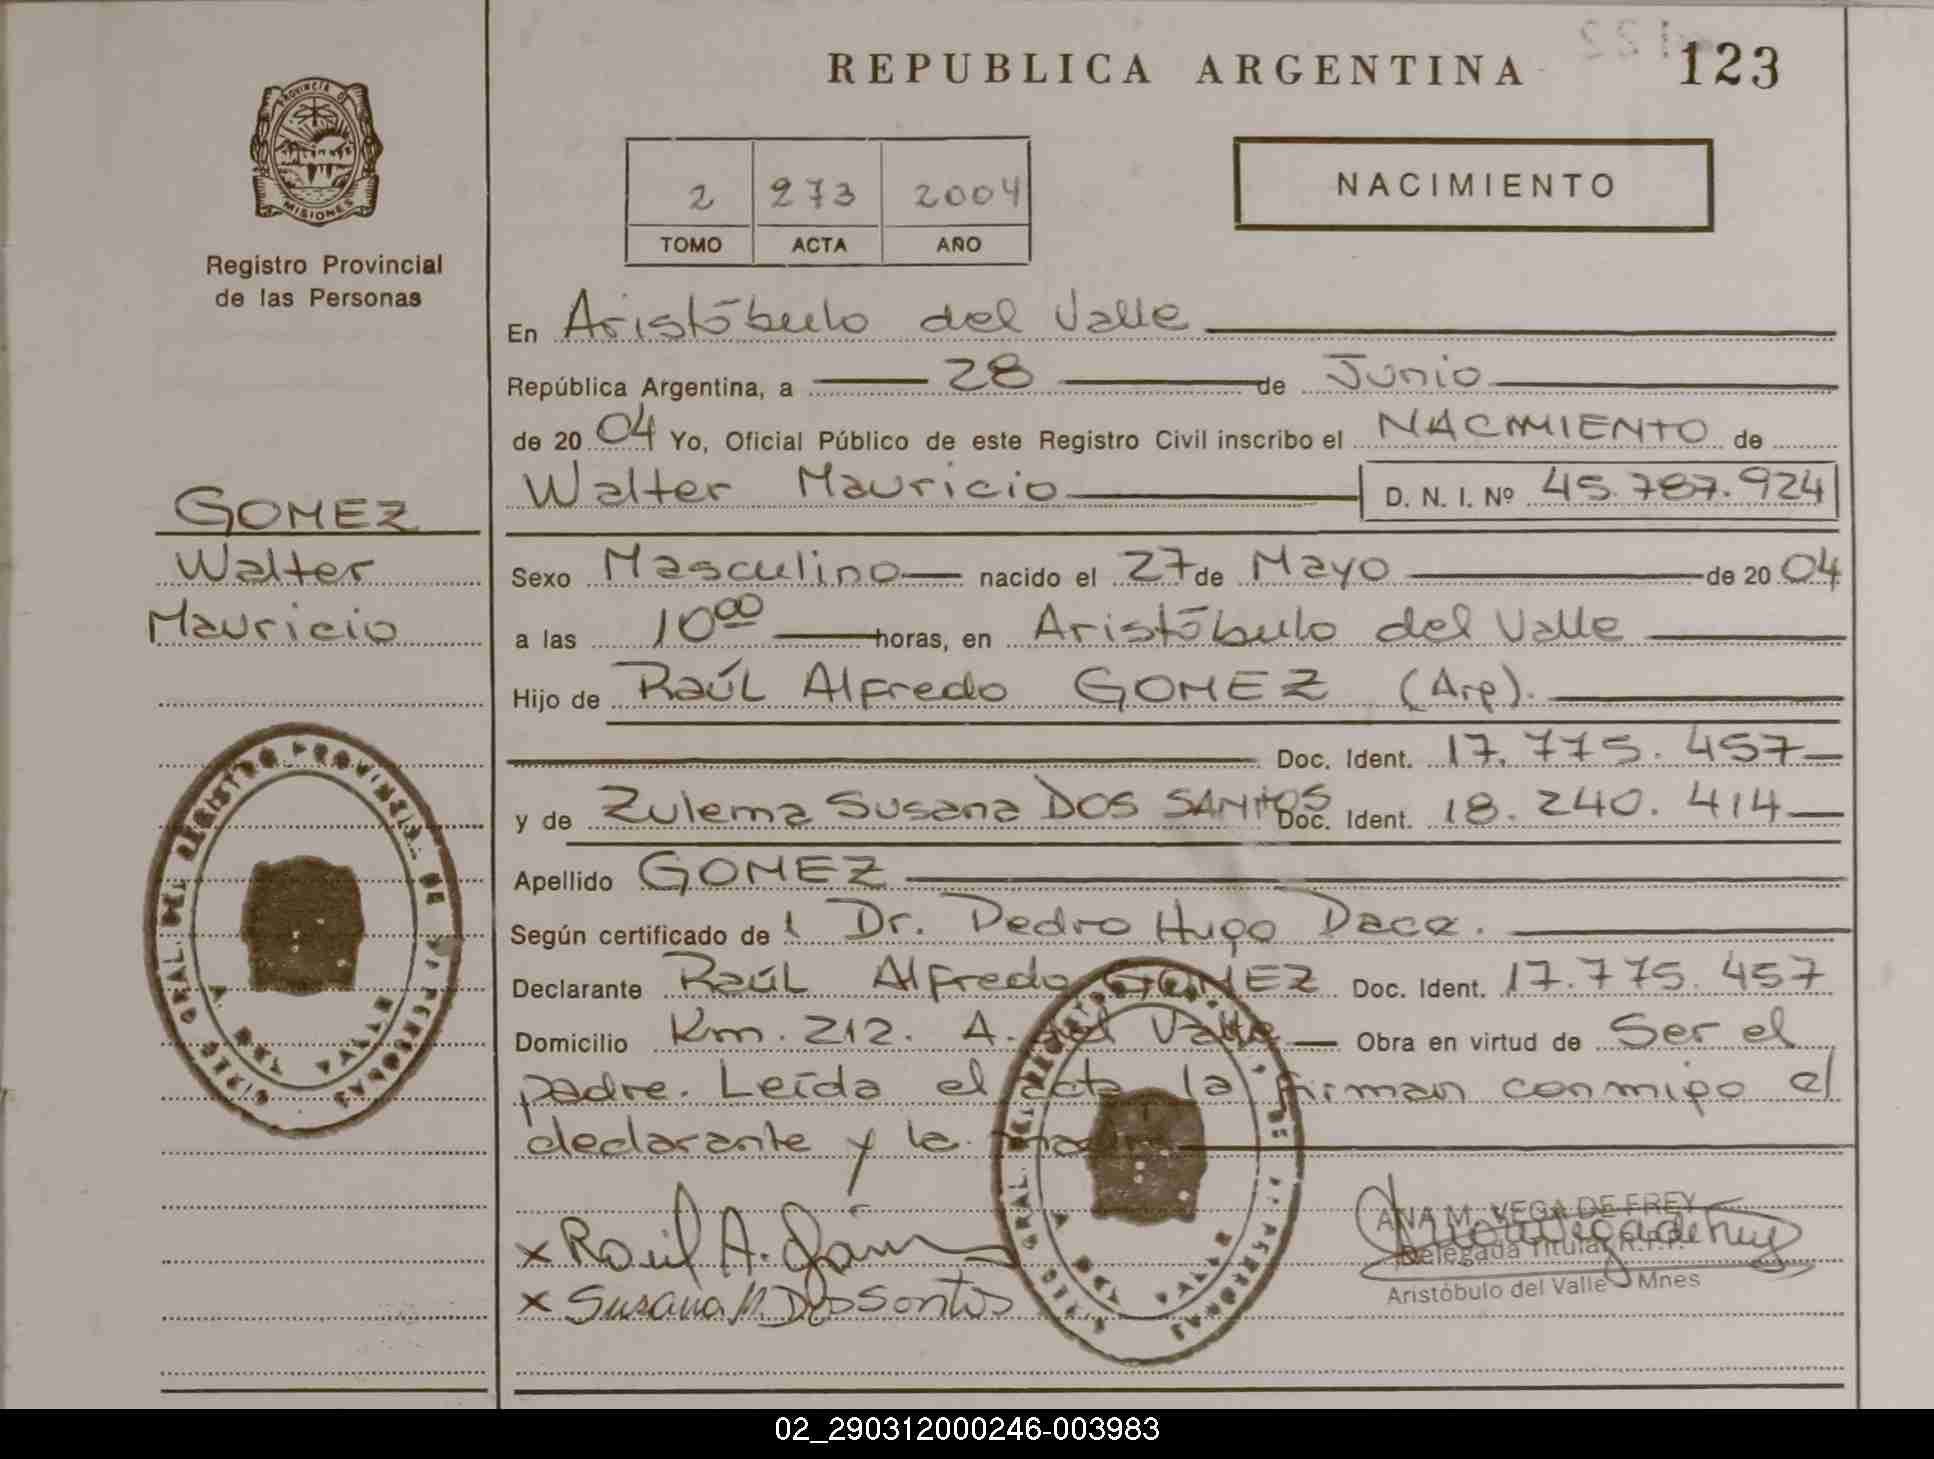 REPUBLICA ARGENTINA 123
PROVINCIA DE
MISIONES
Registro Provincial
de las Personas
2 273 2004
TOMO ACTA AÑO
NACIMIENTO
En Aristóbulo del Valle
República Argentina, a 28 de Junio
de 20 04 Yo, Oficial Público de este Registro Civil inscribo el NACIMIENTO de
Walter Mauricio D. N. I. Nº 45.787.924
GOMEZ
Walter
Mauricio
Sexo Masculino nacido el 27 de Mayo de 20 04
a las 10⁰⁰ horas, en Aristóbulo del Valle
Hijo de Raúl Alfredo GOMEZ (Arg).
Doc. Ident. 17.775.457
y de Zulema Susana DOS SANTOS Doc. Ident. 18.240.414
Apellido GOMEZ
Según certificado de Dr. Pedro Hugo
Declarante Raúl Alfredo GOMEZ Doc. Ident. 17.775.457
Domicilio Km. 212. A. del Valle Obra en virtud de Ser el
padre. Leída el acta la firman conmigo el
declarante y la madre
x Raúl A.
x Susana Dos Santos
ANA M. VEGA DE FREY
Delegada Titular R.P.P.
Aristóbulo del Valle - Mnes
02_290312000246-003983